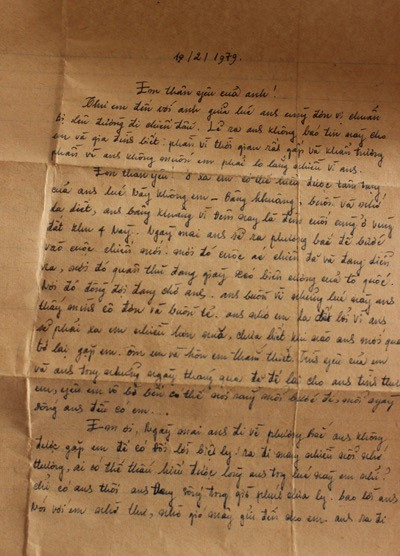 19/2/1979.
Em thân yêu của anh!
Thư em đến với anh giữa lúc anh cùng đơn vị chuẩn
bị lên đường đi chiến đấu. Lẽ ra anh không báo tin này cho
em và gia đình biết: phần vì thời gian rất gấp và khẩn trương
phần vì anh không muốn em phải lo lắng nhiều vì anh.
Em thân yêu! ở xa em có thể hiểu được tâm trạng
của anh lúc này không em - bâng khuâng, buồn và nhớ
da diết, anh bâng khuâng vì đêm nay là đêm cuối cùng ở vùng
đất khu 4 này. Ngày mai anh sẽ ra phương bắc để bước
vào cuộc chiến mới. nơi đó cuộc chiến đã và đang diễn
ra, nơi đó quân thù đang giày xéo biên cương của tổ quốc.
Nơi đó đồng đội đang chờ anh. anh buồn vì những lúc này anh
thấy mình cô đơn và buồn tẻ. anh nhớ em da diết bởi vì anh
sẽ phải xa em nhiều hơn nữa, chưa biết khi nào anh mới quay
trở lại gặp em. ôm em và hôn em tha thiết. Tình yêu của em
và anh trong những ngày tháng qua đã để lại cho anh tình thương
em, yêu em vô bờ bến có thể nói rằng mỗi bước đi, mỗi ngày
sống anh đều có em...
Em ơi, Ngày mai anh đi về phương bắc anh không
được gặp em để có đôi lời biệt ly. ra đi mang nhiều nỗi nhớ
thương, ai có thể thấu hiểu được lòng anh trong lúc này em nhỉ?
chỉ có anh thôi anh đang trong giờ phút chia ly. bao lời anh
nói với em nhờ thư, nhờ gió mây gửi đến cho em. anh ra đi